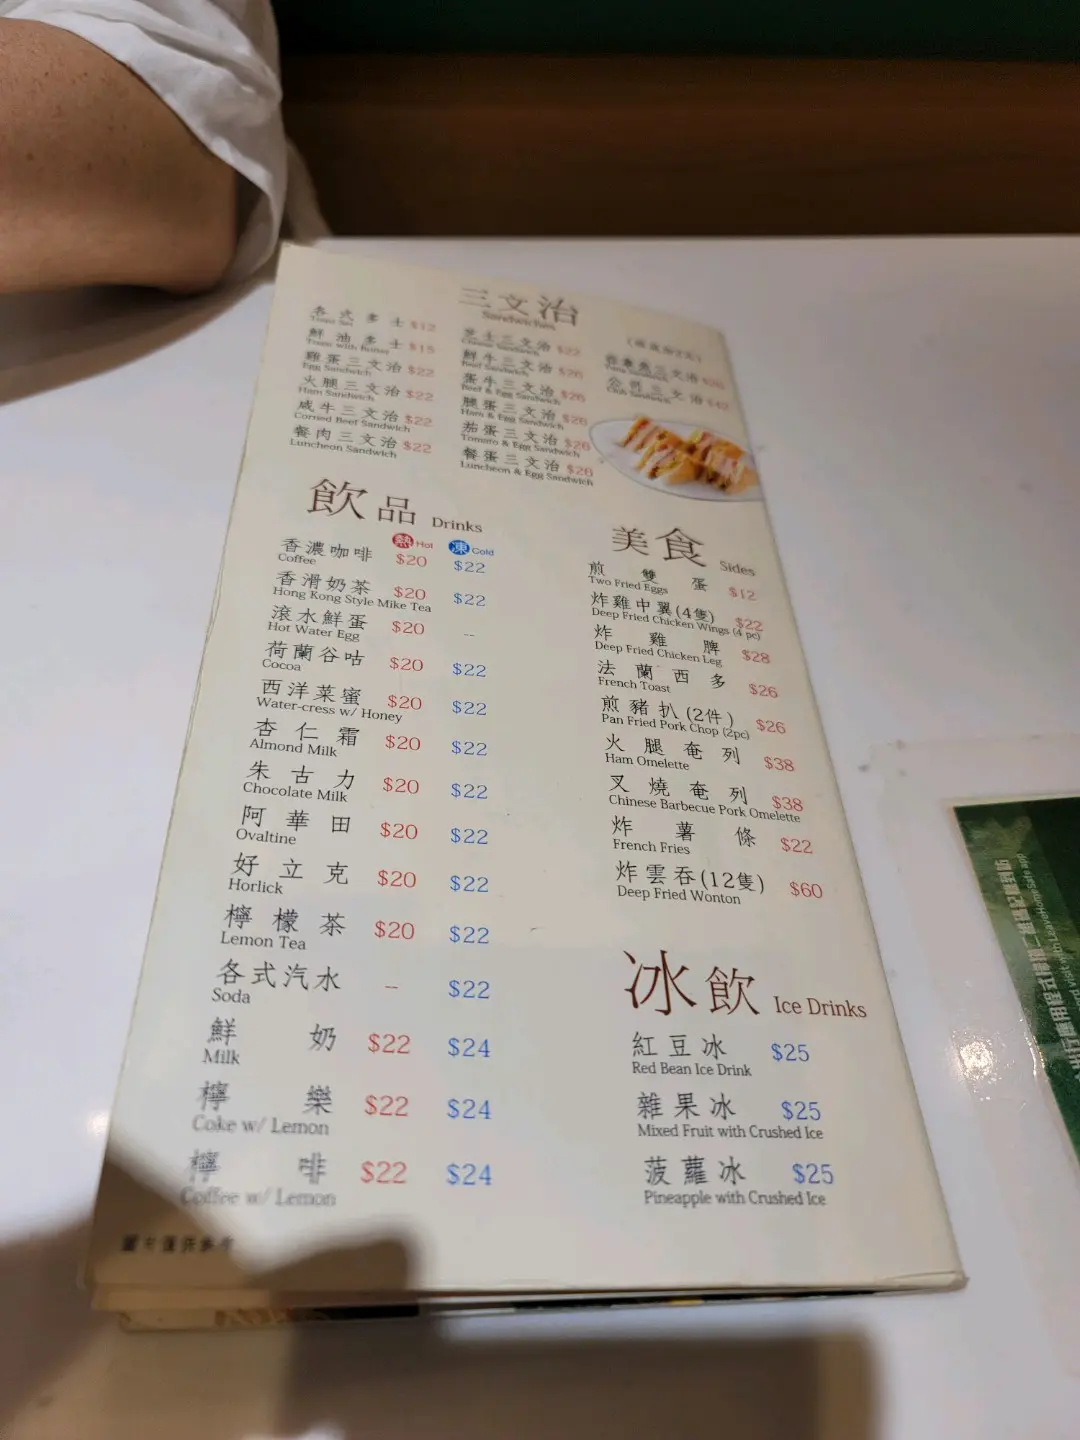 三文治
Sandwiches
各式多士 $12
鮮油多士 $15
雞蛋三文治 $22
Egg Sandwich
火腿三文治 $22
Ham Sandwich
咸牛三文治 $22
Corned Beef Sandwich
餐肉三文治 $22
Luncheon Sandwich
芝士三文治 $22
Cheese Sandwich
鮮牛三文治 $26
Beef Sandwich
蛋牛三文治 $26
Beef & Egg Sandwich
腿蛋三文治 $26
Ham & Egg Sandwich
茄蛋三文治 $26
Tomato & Egg Sandwich
餐蛋三文治 $26
Luncheon & Egg Sandwich
公司三文治 $42
Club Sandwich
飲品 Drinks
熱 Hot 凍 Cold
香濃咖啡 $20 $22
Coffee
香滑奶茶 $20 $22
Hong Kong Style Mike Tea
滾水鮮蛋 $20 --
Hot Water Egg
荷蘭谷咕 $20 $22
Cocoa
西洋菜蜜 $20 $22
Water-cress w/ Honey
杏仁霜 $20 $22
Almond Milk
朱古力 $20 $22
Chocolate Milk
阿華田 $20 $22
Ovaltine
好立克 $20 $22
Horlick
檸檬茶 $20 $22
Lemon Tea
各式汽水 -- $22
Soda
鮮奶 $22 $24
Milk
檸樂 $22 $24
Coke w/ Lemon
檸啡 $22 $24
Coffee w/ Lemon
美食 Sides
煎雙蛋 $12
Two Fried Eggs
炸雞中翼(4隻) $22
Deep Fried Chicken Wings (4 pc)
炸雞脾 $28
Deep Fried Chicken Leg
法蘭西多 $26
French Toast
煎豬扒(2件) $26
Pan Fried Pork Chop (2pc)
火腿奄列 $38
Ham Omelette
叉燒奄列 $38
Chinese Barbecue Pork Omelette
炸薯條 $22
French Fries
炸雲吞(12隻) $60
Deep Fried Wonton
冰飲 Ice Drinks
紅豆冰 $25
Red Bean Ice Drink
雜果冰 $25
Mixed Fruit with Crushed Ice
菠蘿冰 $25
Pineapple with Crushed Ice